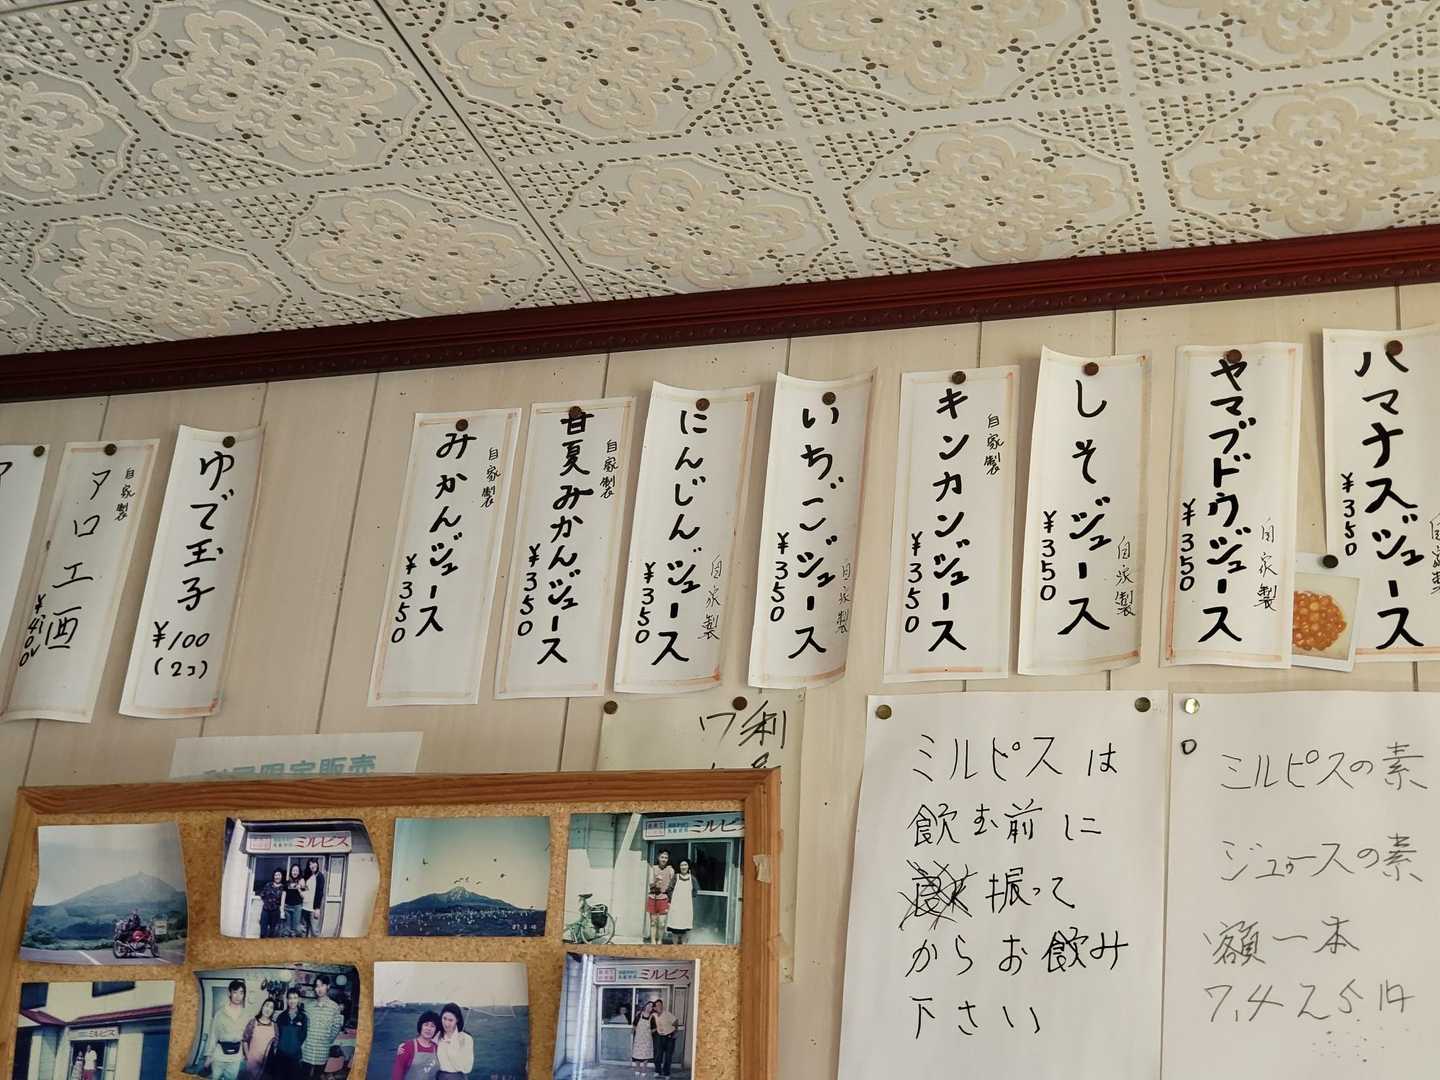 ハマナスジュース
¥350
自家製
ヤマブドウジュース
¥350
自家製
しそジュース
¥350
自家製
キンカンジュース
¥350
自家製
いちごジュース
¥350
自家製
にんじんジュース
¥350
自家製
甘夏みかんジュース
¥350
自家製
みかんジュース
¥350
自家製
ゆで玉子
¥100
(2コ)
アロエ酒
自家製
ミルピスは
飲む前に
振って
からお飲み
下さい
ミルピスの素
ジュースの素
額一本
限定販売
利
ミルピス
ミルピス
ミルピス
ミルピス